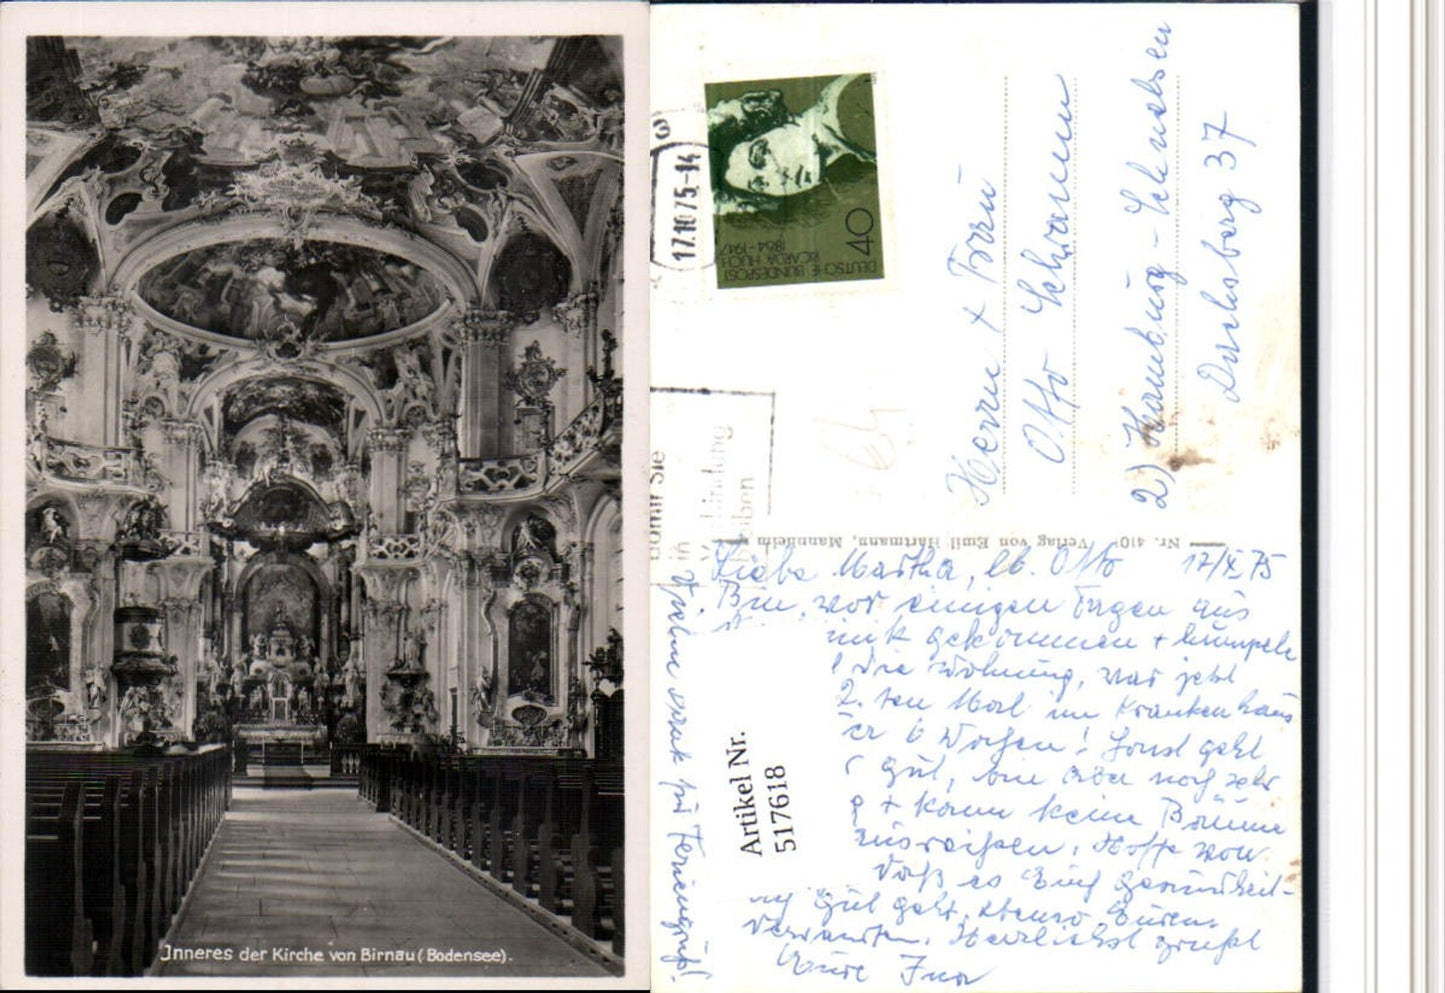 Inneres der Kirche von Birnau (Bodensee).
17.10.75-14
40
DEUTSCHE BUNDESPOST
RICARDA HUCH
1864-1947
Damit Sie
in
Verbindung
bleiben
Herrn + Frau
Otto Schramm
2) Hamburg - Schnelsen
37
Nr. 410 Verlag von Emil Hartmann, Mannheim
Liebe Martha, lb. Otto 17/X 75
Bin vor einigen Tagen aus
gekommen +
die Wohnung, war jetzt
2. ten Mal im Krankenhaus
6 Wochen! Sonst geht
gut, bin aber noch sehr
+ kann keine Bäume
ausreißen! Hoffe von
daß es Euch gesundheit-
gut geht, ebenso Euren
Verwandten. Herzlichst grüßt
Eure
Vielen Dank für Feriengruß!
Artikel Nr.
517618